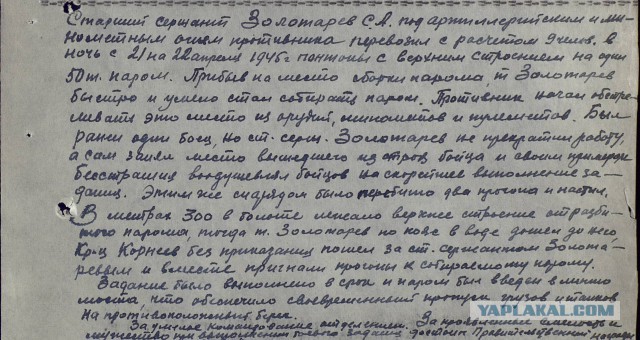 Старший сержант Золотарев С.А. под артиллерийским и ми-
нометным огнем противника перевозил с расчетом 9 челов. в
ночь с 21 на 22 апреля 1945 г понтоны с верхним строением на один
50 т. паром. Прибыв на место сборки парома, т. Золотарев
быстро и умело стал собирать паром. Противник начал обстре-
ливать это место из орудий, минометов и пулеметов. Был
ранен один боец, но ст. серж. Золотарев не прекратил работу,
а сам занял место вышедшего из строя бойца и своим примером
бесстрашия воодушевлял бойцов на скорейшее выполнение за-
дания. Этим же снарядом было перебито два прогона и настил.
В метрах 300 в болоте лежало верхнее строение от разби-
того парома, тогда т. Золотарев по пояс в воде дошел до него
Кр-ц Корнеев без приказания пошел за ст. сержантом Золота-
ревым и вместе пригнали прогоны к собираемому парому.
Задание было выполнено в срок и паром был введен в линию
моста, что обеспечило своевременный пропуск грузов и танков
на противоположный берег.
За умелое командование отделением. За проявленные смелость и
мужество при выполнении боевого задания достоин Правительственной награды
YAPLAKAL.COM